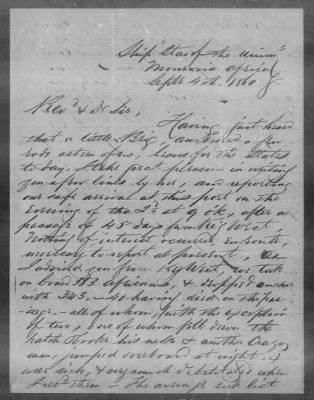 Ship "Star of the Union"
Monrovia Africa
Septr 4th, 1860
Revd & Dr Sir,
Having just heard
that a little Brig, anchored a few
rods astern of us, leaves for the States
to day, I take great pleasure in writing
you a few lines by her, and reporting
our safe arrival at this port on the
evening of the 2d at 9 ok, after a
passage of 45 days from Key West
Nothing of interest occurred enroute,
necessary to report at present, As
I advised you from Key West, we took
on board 383 Africans, & dropped anchor
with 343, - 40 having died on the pas-
sage, - all of whom, with the exception
of two, one of whom fell down the
hatch & broke his neck & another crazy
man, jumped overboard at night,
were sick, & very much debilitated when
I recd them - The average sick list